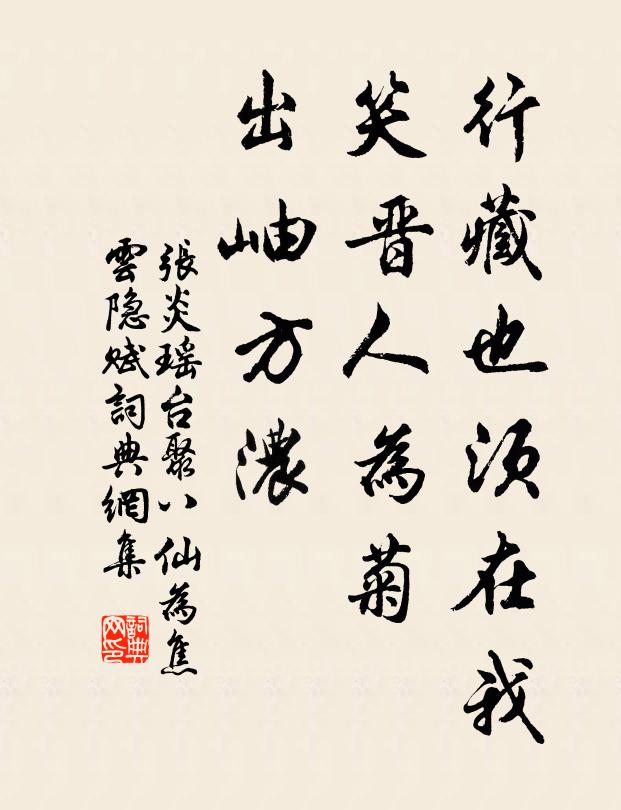 行藏也须在我
笑晋人為菊
出岫方濃
張炎瑶台聚八仙為焦
雲隐赋詞典網集
詞典网印